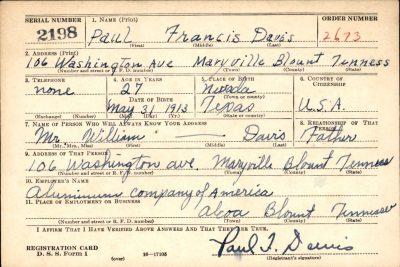 SERIAL NUMBER 1. NAME (Print) ORDER NUMBER
2198 Paul Francis Davis 2673
(First) (Middle) (Last)
2. ADDRESS (Print)
106 Washington Ave Maryville Blount Tenness
(Number and street or R. F. D. number) (Town) (County) (State)
3. TELEPHONE 4. AGE IN YEARS 5. PLACE OF BIRTH 6. COUNTRY OF CITIZENSHIP
none 27 Nevada
DATE OF BIRTH (Town or county)
May 31 1913 Texas U.S.A.
(Exchange) (Number) (Mo.) (Day) (Yr.) (State or country)
7. NAME OF PERSON WHO WILL ALWAYS KNOW YOUR ADDRESS 8. RELATIONSHIP OF THAT PERSON
Mr. William — Davis Father
(Mr., Mrs., Miss) (First) (Middle) (Last)
9. ADDRESS OF THAT PERSON
106 Washington ave. Maryville Blount Tennessee
(Number and street or R. F. D. number) (Town) (County) (State)
10. EMPLOYER'S NAME
Aluminum Company of America
11. PLACE OF EMPLOYMENT OR BUSINESS
Alcoa Blount Tennessee
(Number and street or R. F. D. number) (Town) (County) (State)
I AFFIRM THAT I HAVE VERIFIED ABOVE ANSWERS AND THAT THEY ARE TRUE.
REGISTRATION CARD Paul F. Davis
D. S. S. Form 1 (over) 16—17105 (Registrant's signature)